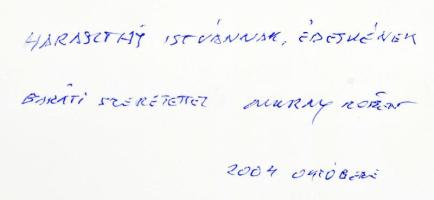 HARASZTHY ISTVÁNNAK, ÉDESKÉNEK
BARÁTI SZERETETTEL MURAY RÓBERT
2004 OKTÓBERE